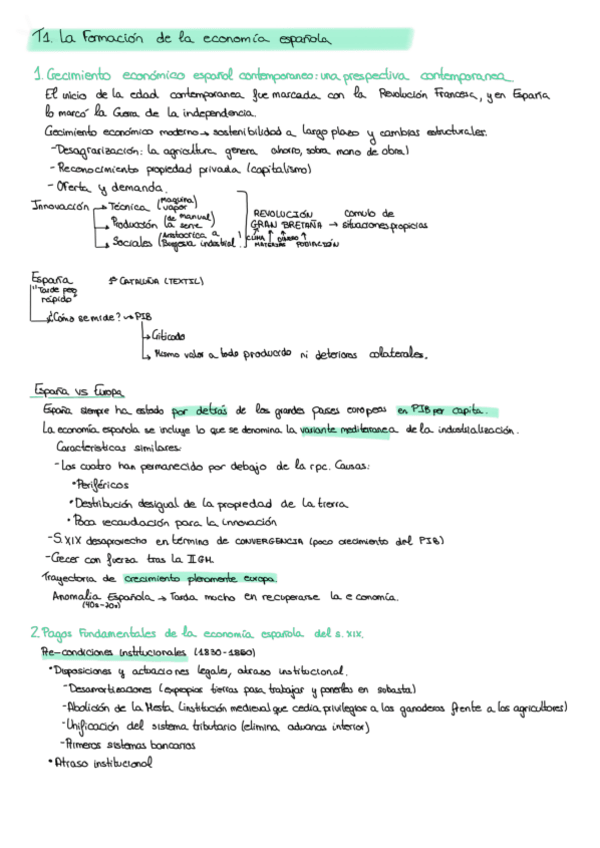 T1. La Formación de la economía española
1. Crecimiento económico español contemporaneo: una prespectiva contemporanea
El inicio de la edad contemporanea fue marcada con la Revolución Francesa, y en España
lo marcó la Guerra de la independencia.
Crecimiento económico moderno → sostenibilidad a largo plazo y cambios estructurales.
- Desagrarización: la agricultura genera ahorro, sobra mano de obra)
- Reconocimiento propiedad privada (capitalismo)
- Oferta y demanda.
Innovación → Técnica (maquina vapor)
→ Producción (de manual a serie)
→ Sociales (Aristocrica a Burgesia industrial)
REVOLUCIÓN GRAN BRETAÑA → Comulo de situaciones propicias
CLIMA ↑ MATERIAS ↑ DINERO ↑ POBLACIÓN
España 1º CATALUÑA (TEXTIL)
"Tarde pero rápido"
¿Cómo se mide? → PIB
→ Criticado
→ Mismo valor a todo producido ni deteriores colaterales.
España vs Europa
España siempre ha estado por detrás de los grandes paises europeos en PIB per capita.
La economía española se incluye lo que se denomina la variante mediterranea de la industrialización.
Caracteristicas similares:
- Los cuatro han permanecido por debajo de la rpc. Causas:
• Periféricos
• Destribución desigual de la propiedad de la tierra
• Poca recaudación para la innovación
- S. XIX desaprovecho en término de CONVERGENCIA (poco crecimiento del PIB)
- Crecer con fuerza tras la II GM.
Trayectoria de crecimiento plenamente europa.
Anomalia Española → Tarda mucho en recuperarse la economía.
(40s-20s)
2. Pagos Fundamentales de la economía española del s. XIX.
Pre-condiciones institucionales (1830-1880)
• Disposiciones y actuaciones legales, atraso institucional.
- Desamortizaciones (expropiar tierras pasa trabajar y ponerlas en subasta)
- Abolición de la Mesta (institución medieval que cedia privilegios a los ganaderos frente a los agricultores)
- Unificación del sistema tributario (elimina aduanas interior)
- Primeros sistemas bancarios
• Atraso institucional